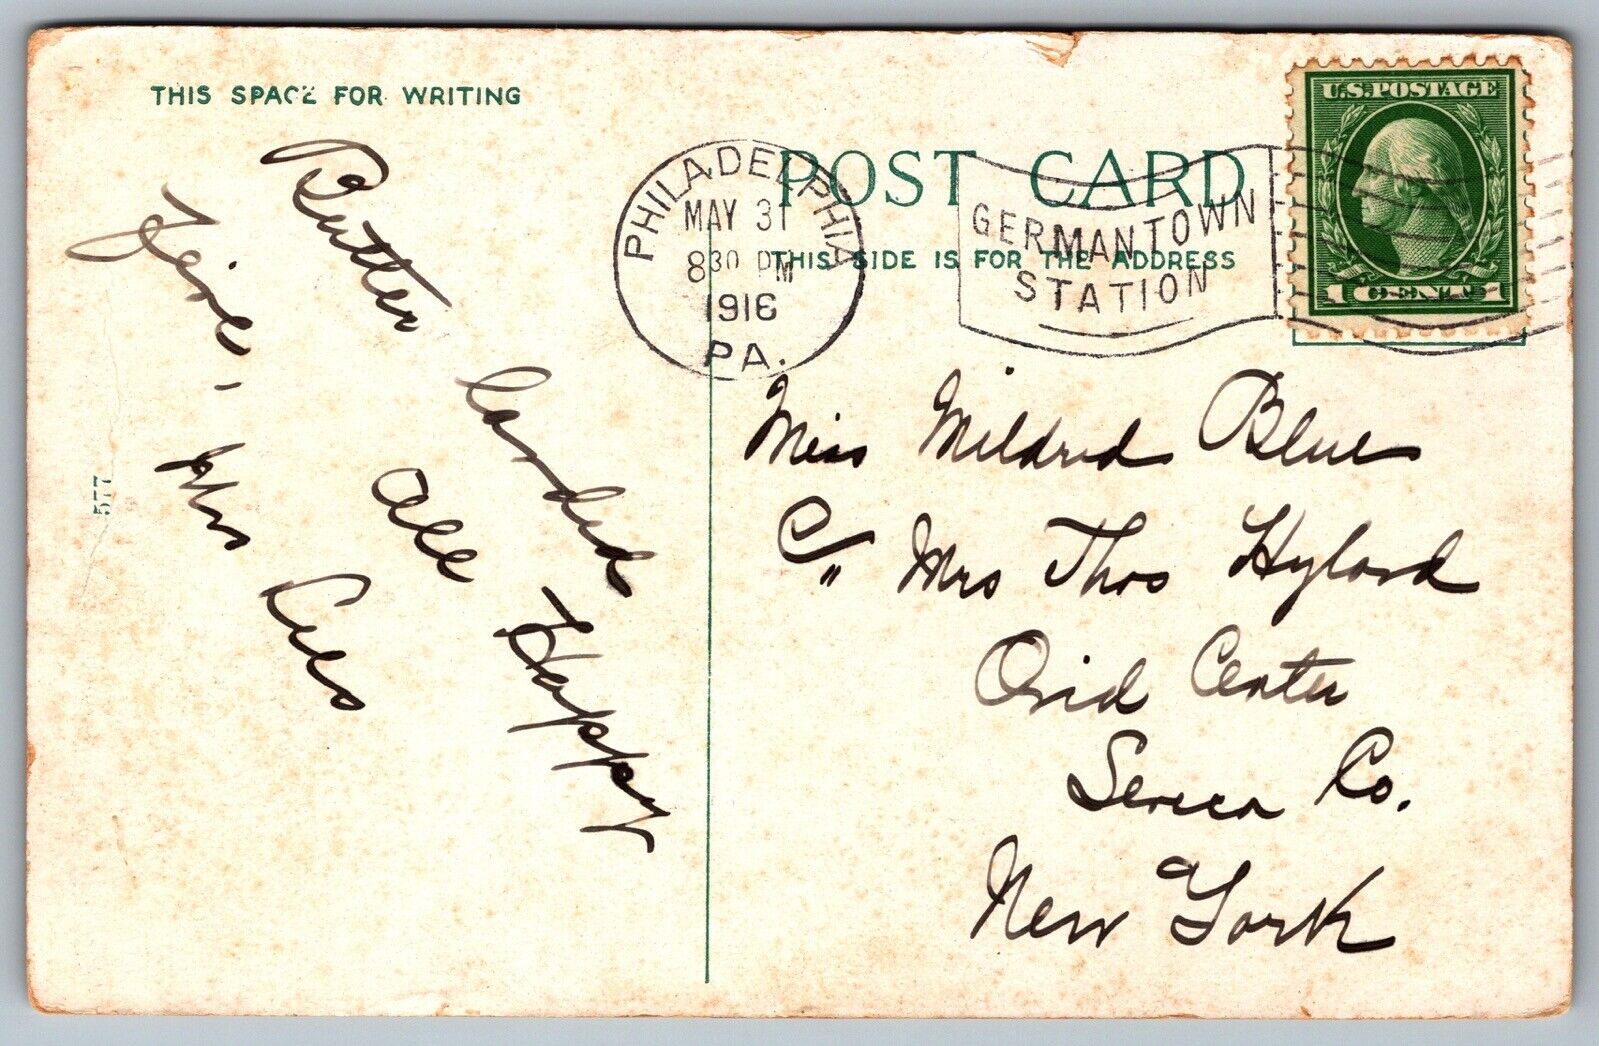 THIS SPACE FOR WRITING
Butter landed
all Happy
Fine, -
Mrs
577
POST CARD
THIS SIDE IS FOR THE ADDRESS
PHILADELPHIA
MAY 31
830 PM
1916
PA.
GERMANTOWN
STATION
U.S. POSTAGE
1 CENT 1
Miss Mildred Blue
C/o Mrs Thos Hyland
Ovid Center
Seneca Co.
New York